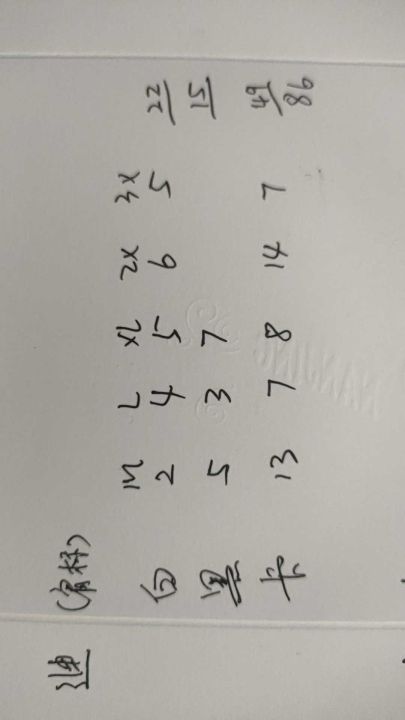 (有标)
M L XL 2X 3X
白 2 4 5 6 5 22
黑 5 3 7 15
卡 13 7 8 14 7 49
86
NANJING